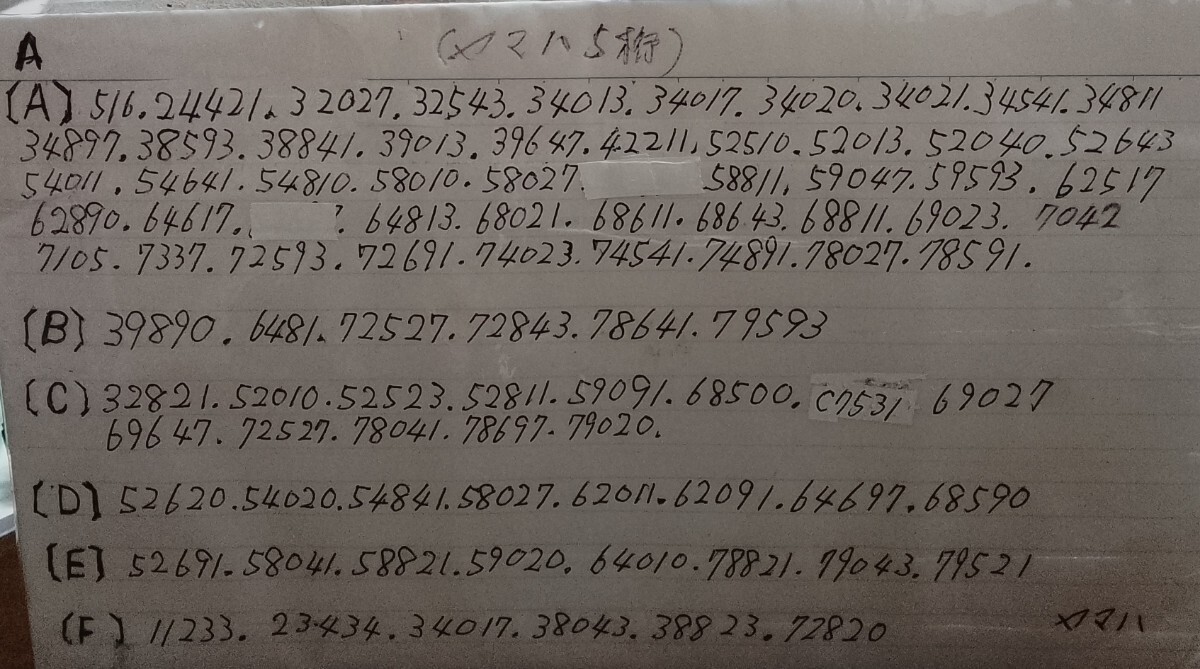 A
(ヤマハ5桁)
(A) 516.24421.32027.32543.34013.34017.34020.34021.34541.34811
34897.38593.38841.39013.39647.42211.52510.52013.52040.52643
54011.54641.54810.58010.58027. 58811.59047.59593.62517
62890.64617. 64813.68021.68611.68643.68811.69023.7042
7105.7337.72593.72691.74023.74541.74891.78027.78591.
(B) 39890.6481.72527.72843.78641.79593
(C) 32821.52010.52523.52811.59091.68500.C7531 69027
69647.72527.78041.78697.79020.
(D) 52620.54020.54841.58027.62011.62091.64697.68590
(E) 52691.58041.58821.59020.64010.78821.79043.79521
(F) 11233.23434.34017.38043.38823.72820 ヤマハ